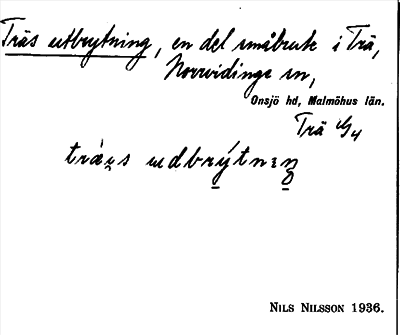 Träs utbrytning, en del småbruk i Trä,
Norrvidinge sn,
Onsjö hd, Malmöhus län.
Trä 1/4
NILS NILSSON 1936.